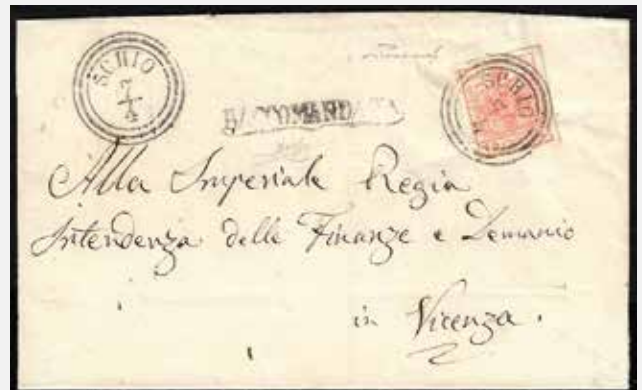 SCHIO
7
4
RACCOMANDATA
SCHIO
Alla Imperiale Regia
Intendenza delle Finanze e Demanio
in Vicenza.